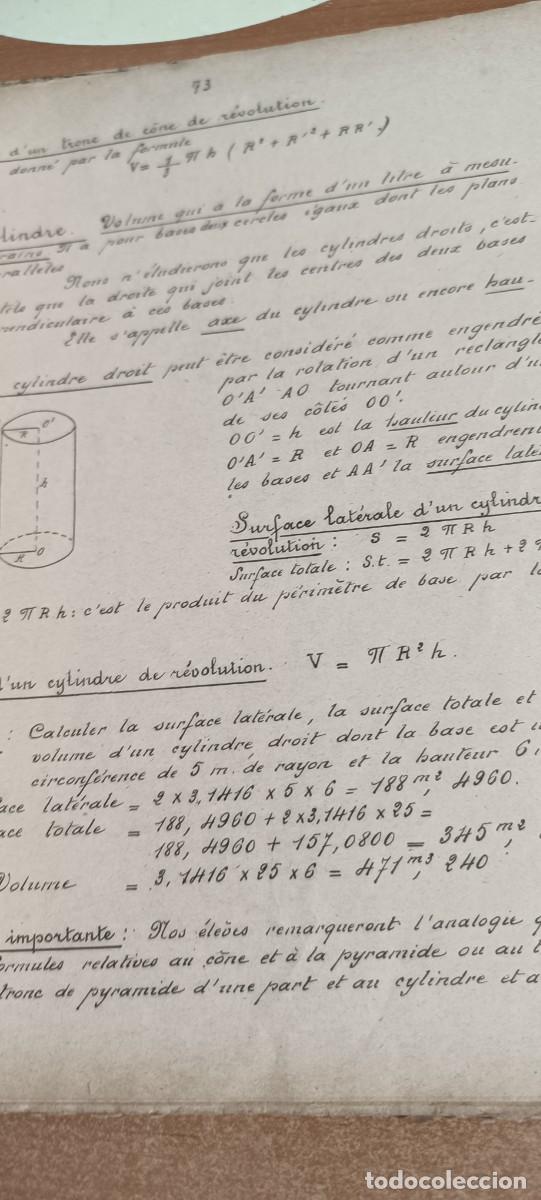 73
d'un tronc de cône de révolution.
donné par la formule
V = 1/3 π h ( R² + R'² + RR' )
lindre. Volume qui a la forme d'un litre à mesu-
rains. Il a pour bases deux cercles égaux dont les plans
rallèles.
Nous n'étudierons que les cylindres droits, c'est-
tels que la droite qui joint les centres des deux bases
pendiculaire à ces bases.
Elle s'appelle axe du cylindre ou encore hau-
cylindre droit peut être considéré comme engendré
par la rotation d'un rectangle
O'A' AO tournant autour d'u
de ses côtés OO'.
OO' = h est la hauteur du cylin
O'A' = R et OA = R engendrent
les bases et AA' la surface laté
R O'
h
R O
Surface latérale d'un cylindr
révolution : S = 2 π R h
Surface totale : S.t. = 2 π R h + 2 π
2 π R h : c'est le produit du périmètre de base par la
d'un cylindre de révolution. V = π R² h.
: Calculer la surface latérale, la surface totale et
volume d'un cylindre droit dont la base est u
circonférence de 5 m. de rayon et la hauteur 6,
ace latérale = 2 x 3,1416 x 5 x 6 = 188 m², 4960.
ace totale = 188, 4960 + 2 x 3,1416 x 25 =
188, 4960 + 157,0800 = 345 m²
Volume = 3,1416 x 25 x 6 = 471 m³, 240
importante : Nos élèves remarqueront l'analogie q
formules relatives au cône et à la pyramide ou au t
tronc de pyramide d'une part et au cylindre et a
todocoleccion